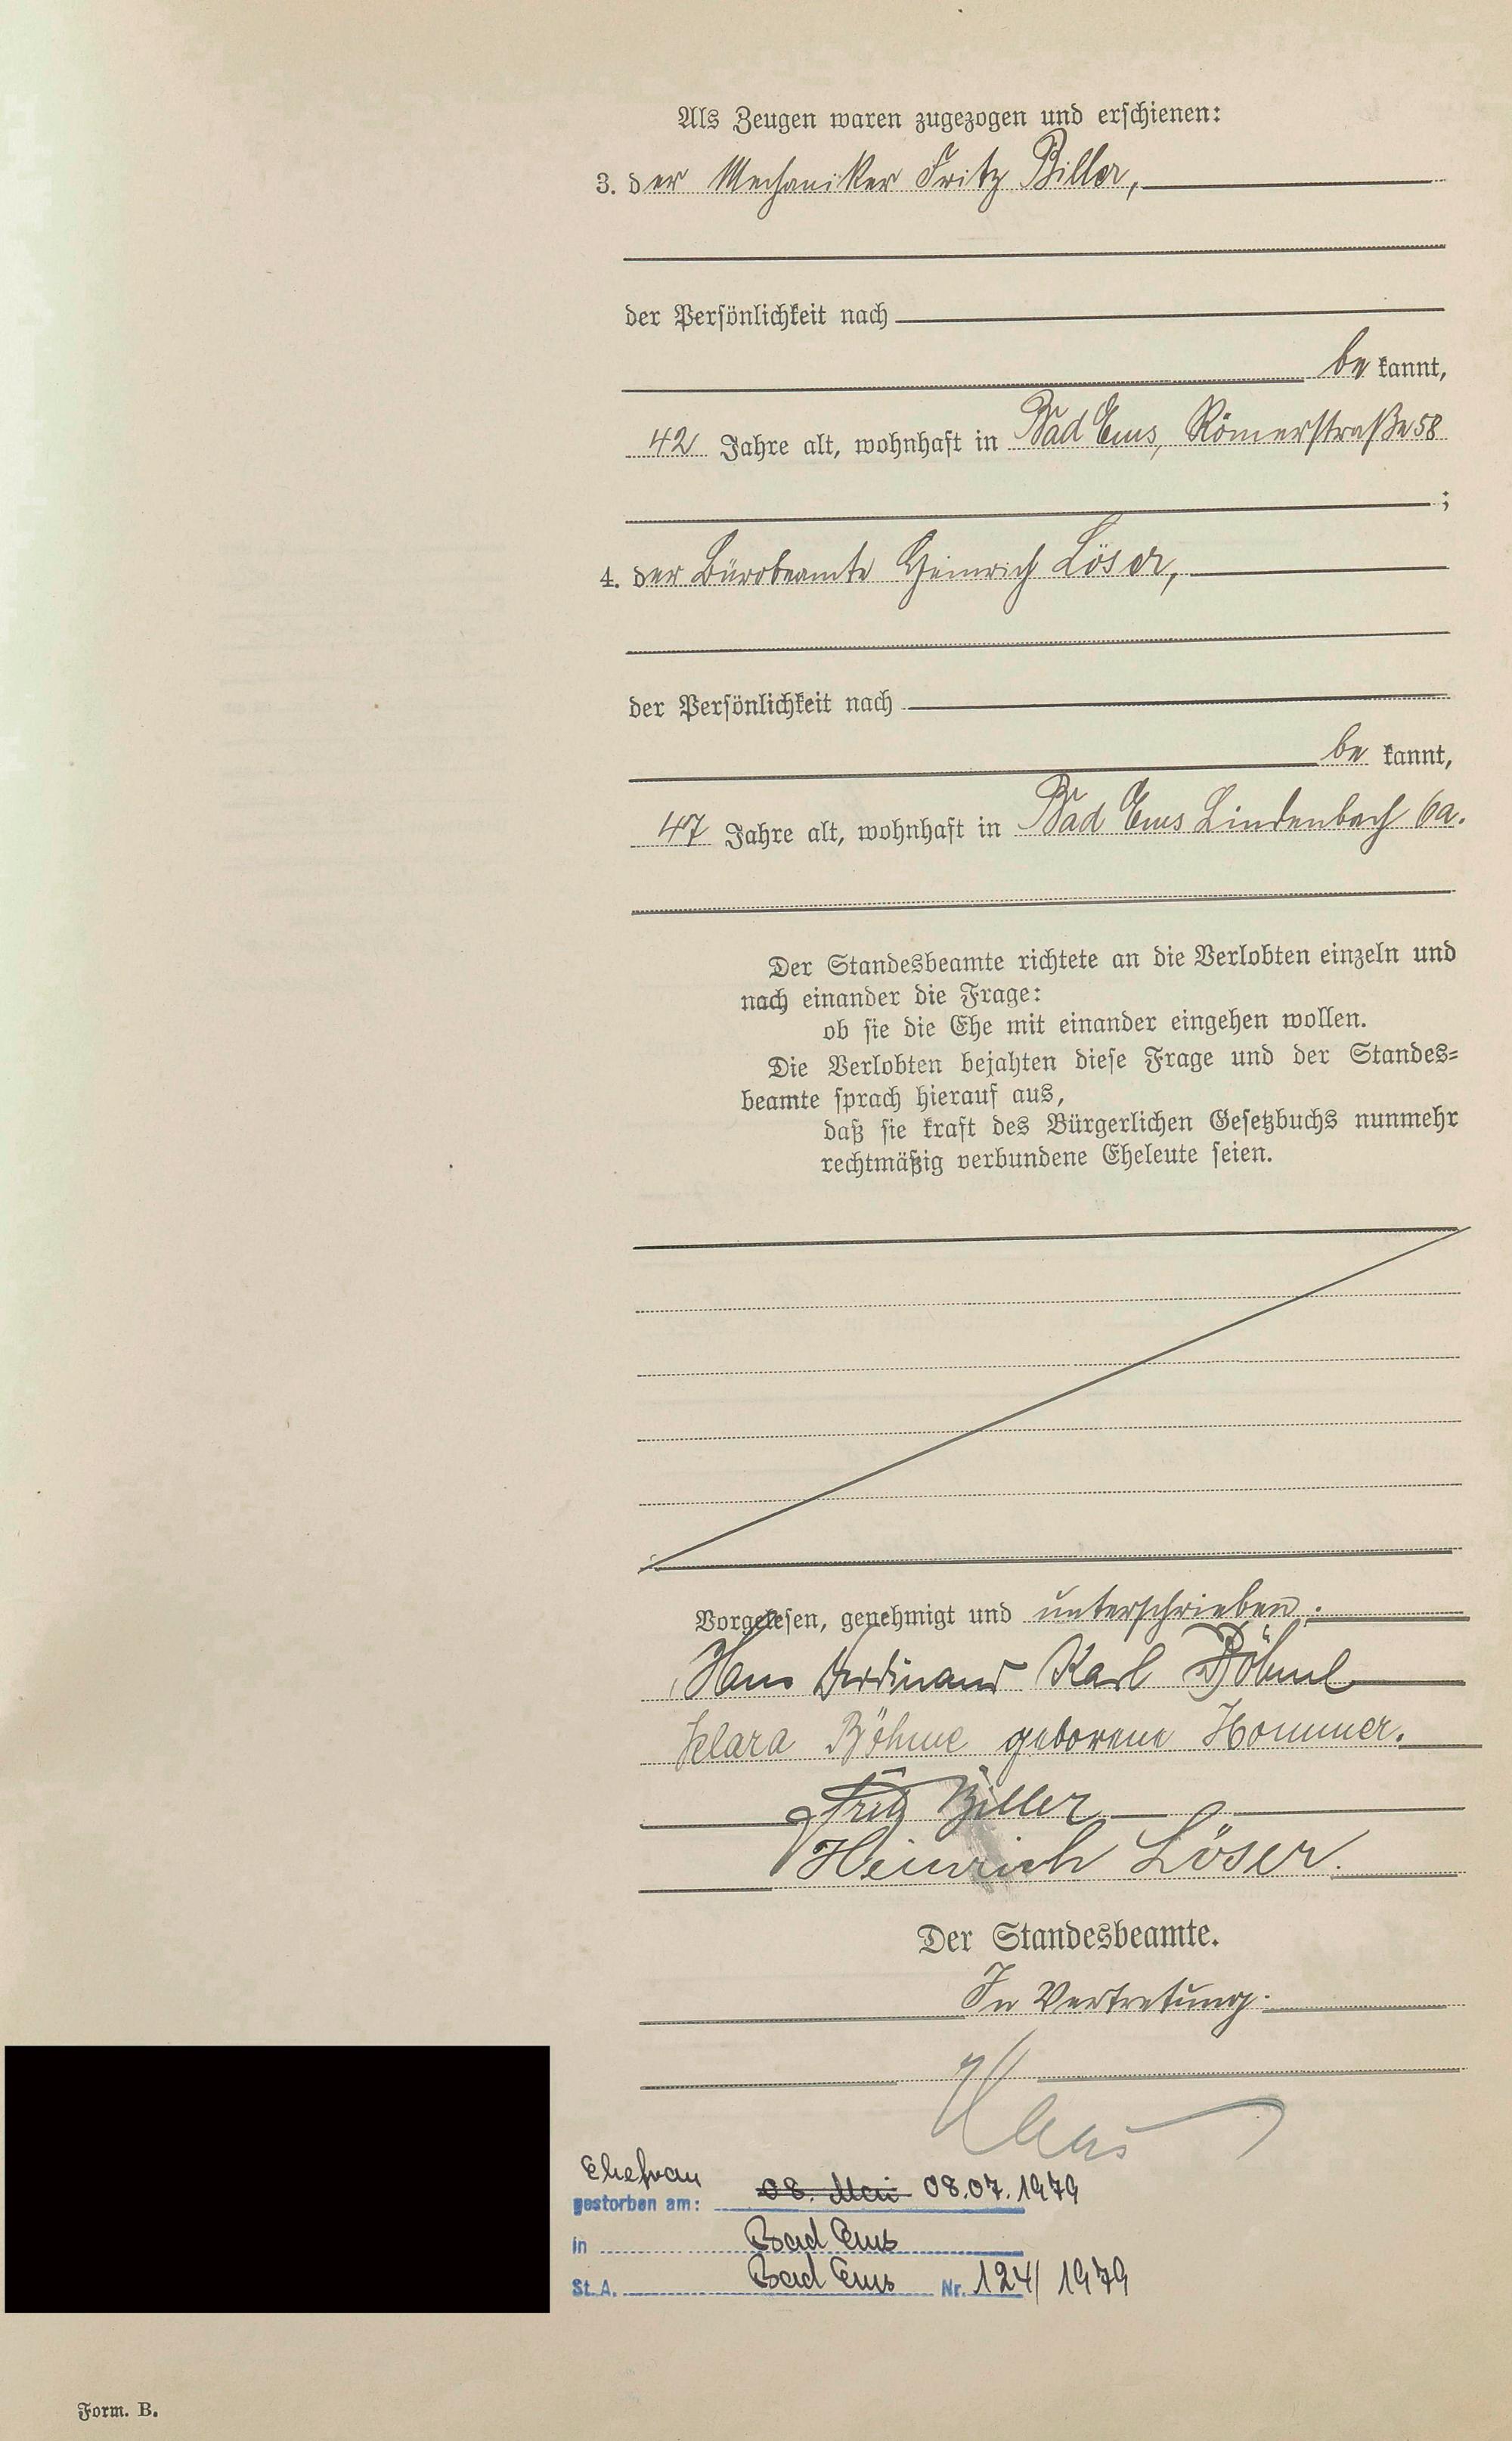 Als Zeugen waren zugezogen und erschienen:
3. der Mechaniker Fritz Biller,
der Persönlichkeit nach
be kannt,
42 Jahre alt, wohnhaft in Bad Ems, Römerstraße 58
;
4. der Bürobeamte Heinrich Löser,
der Persönlichkeit nach
be kannt,
47 Jahre alt, wohnhaft in Bad Ems Lindenbach 6a.
Der Standesbeamte richtete an die Verlobten einzeln und
nach einander die Frage:
ob sie die Ehe mit einander eingehen wollen.
Die Verlobten bejahten diese Frage und der Standes-
beamte sprach hierauf aus,
daß sie kraft des Bürgerlichen Gesetzbuchs nunmehr
rechtmäßig verbundene Eheleute seien.
Vorgelesen, genehmigt und unterschrieben.
Hans Ferdinand Karl Böhme
Klara Böhme geborene Hommer.
Fritz Biller
Heinrich Löser.
Der Standesbeamte.
In Vertretung.
Ehefrau
gestorben am: 08. Mai 08.07.1979
in Bad Ems
St. A. Bad Ems Nr. 124/1979
Form. B.